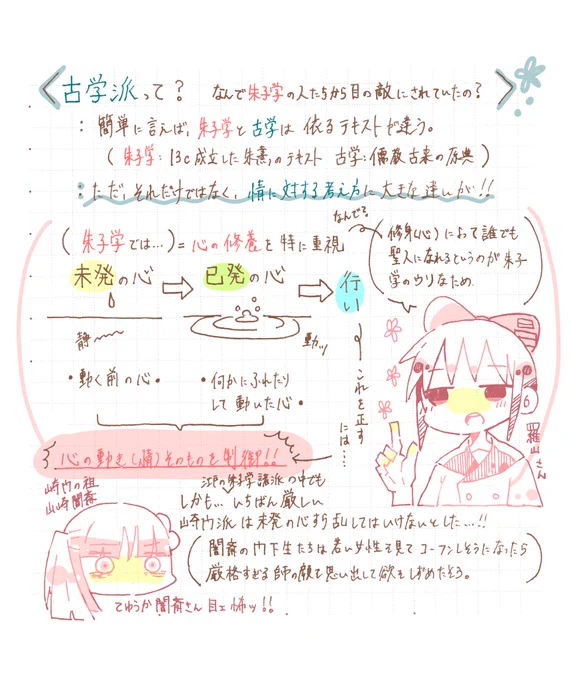 古学派って？ なんで朱子学の人たちから目の敵にされていたの？
：簡単に言えば、朱子学と古学は 依るテキストが違う。
（朱子学：13c成立した朱熹のテキスト 古学：儒教古来の原典）
：ただ、それだけではなく、情に対する考え方に大きな違いが!!
なんで？
（朱子学では…）＝心の修養を特に重視
修身(心)によって誰でも
聖人になれるというのが朱子
学のウリなため
未発の心
已発の心
行い
静〜
動ッ
・動く前の心・
・何かにふれたり
して動いた心・
これを正す
には…
心の動き(情)そのものを制御!!
羅山さん
山崎門の祖
山崎闇斎
江戸の朱子学諸派の中でも
しかも… いちばん厳しい
山崎門派は未発の心すら乱してはいけないとした…!!
闇斎の門下生たちは若い女性を見てコーフンしそうになったら
厳格すぎる師の顔を思い出して欲をしずめたそう。
てゆうか闇斎さん目ェ怖ッ!!